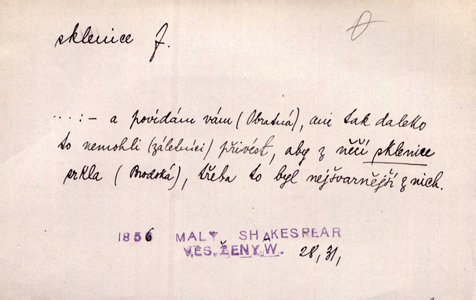 sklenice f.
....:– a povídám vám (Obratná), ani tak daleko
to nemohli (záletníci) přivést, aby z něčí sklenice
srkla (Brodská), třeba to byl nejšvarnější z nich.
1856 MALÝ, SHAKESPEAR
VES. ŽENY W. 28, 31,